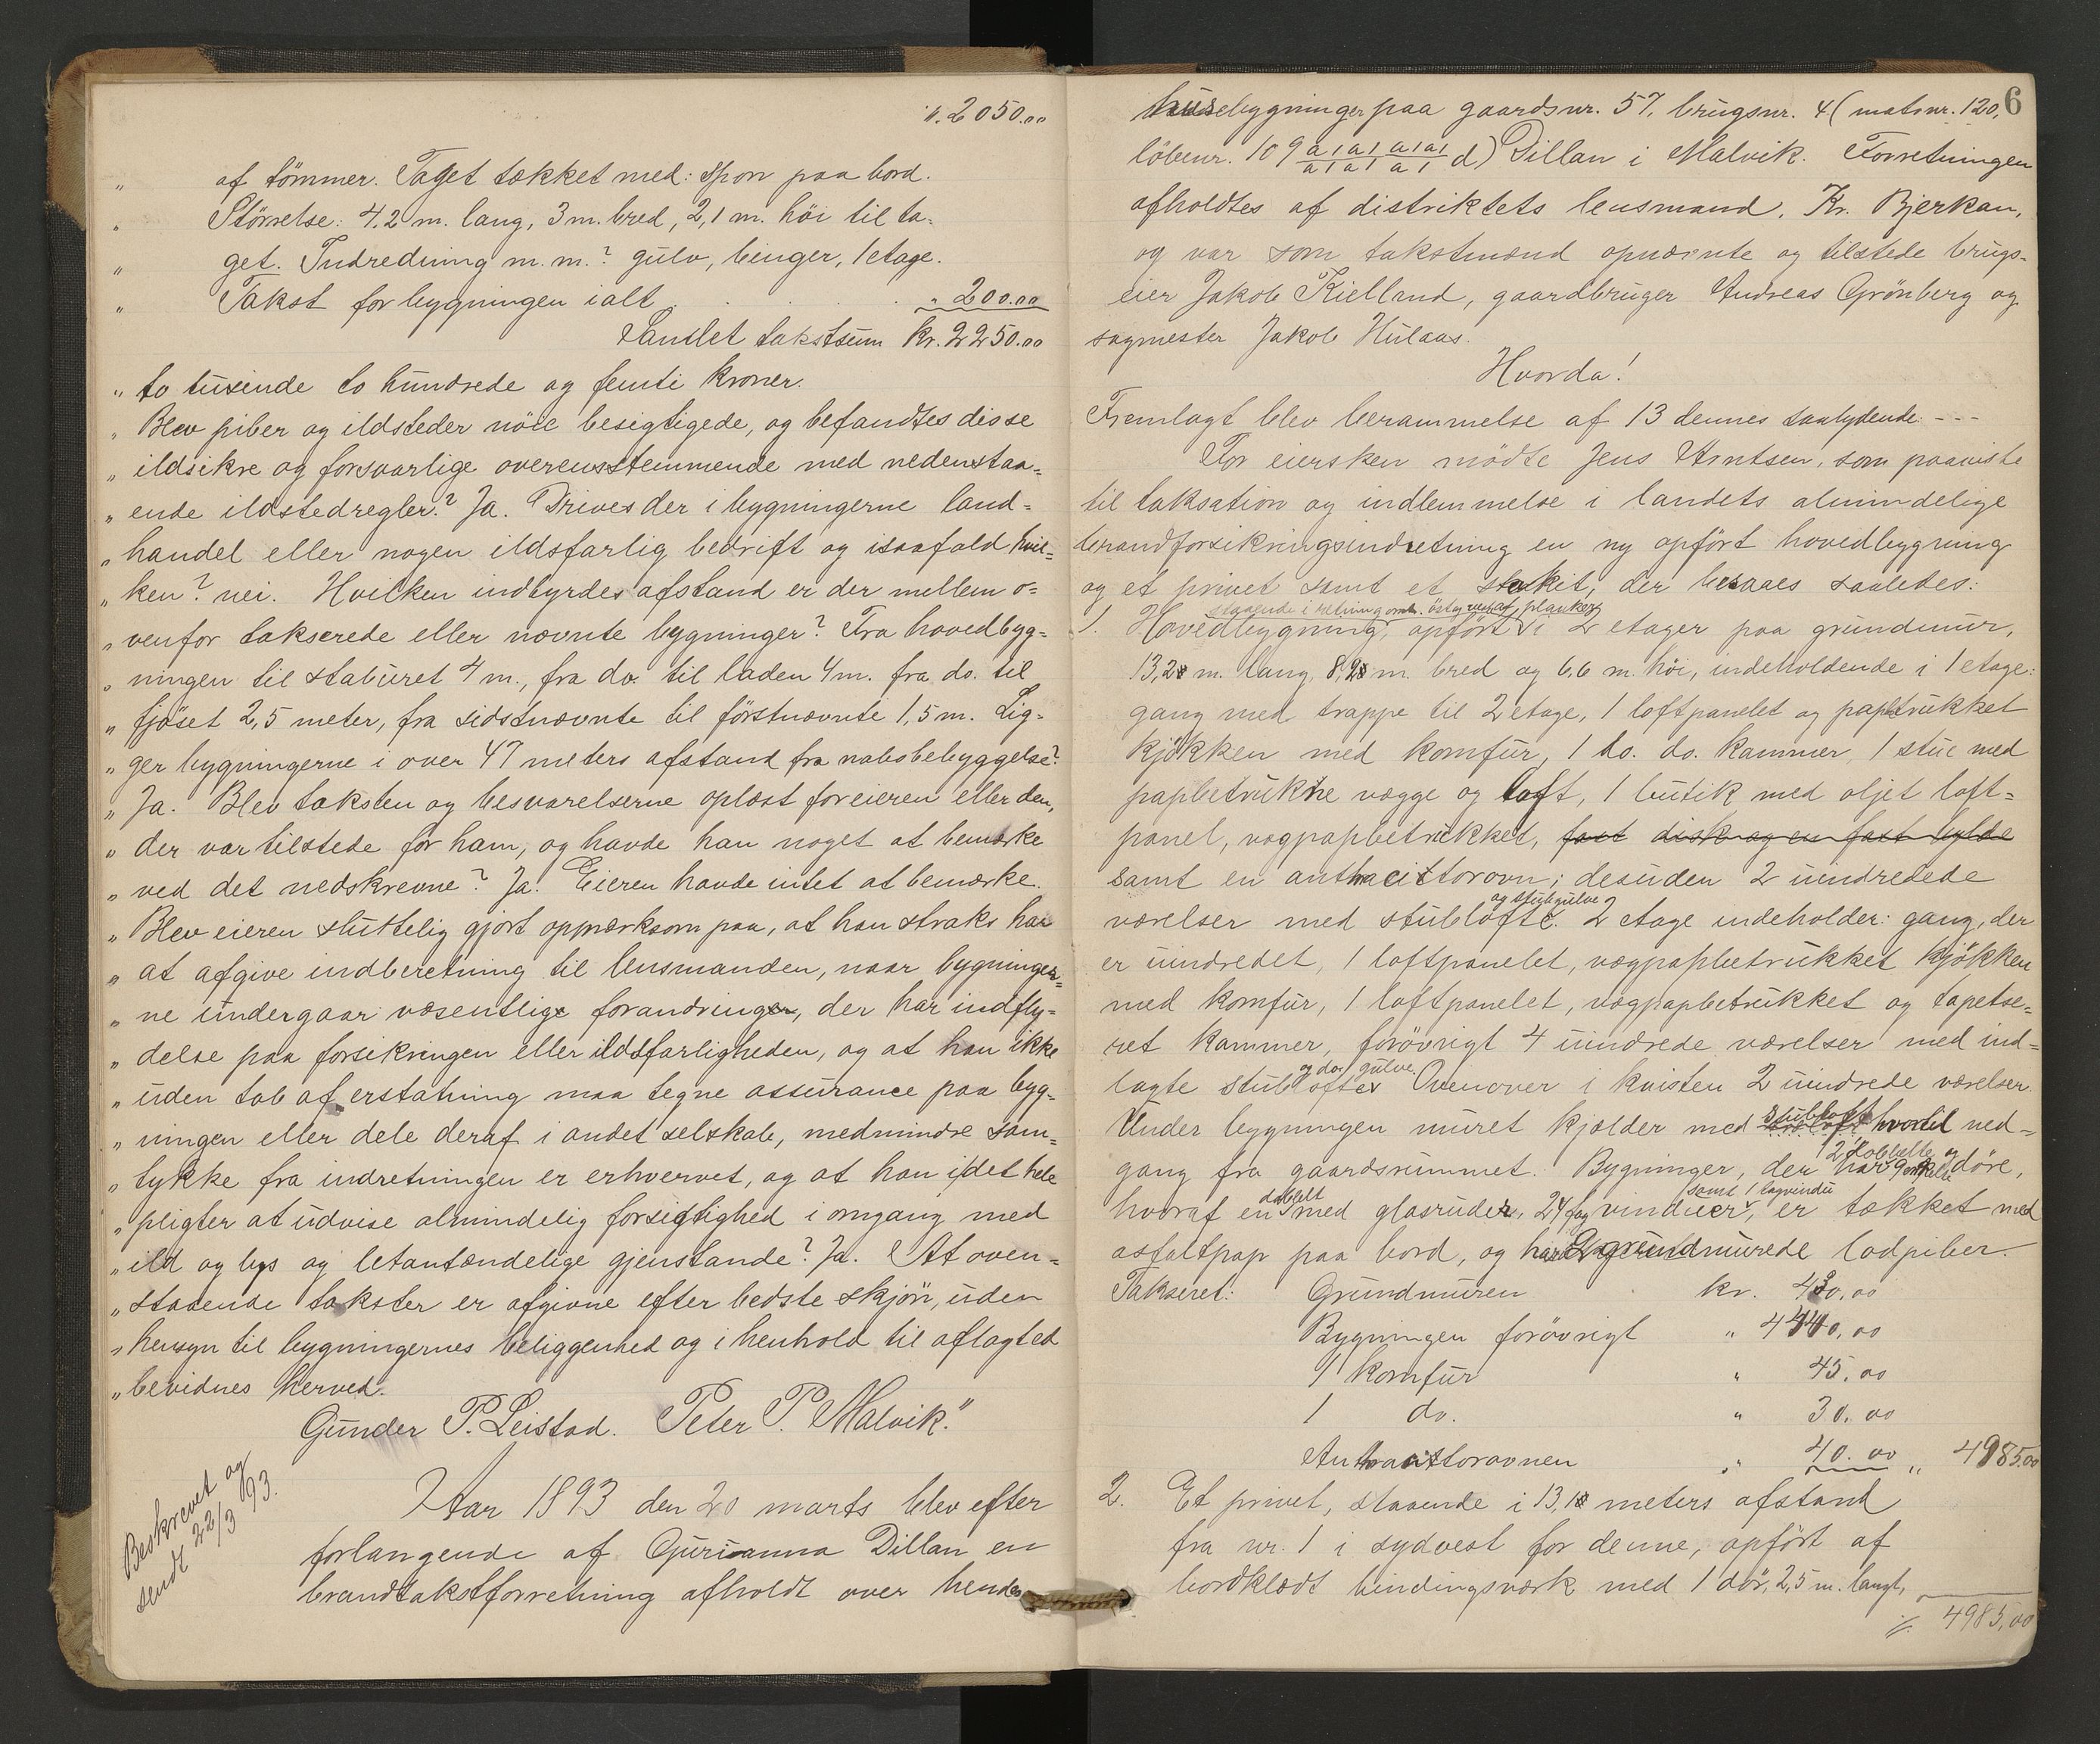 ". 2050.00
" af tömmer. Taget tækket med: Spon paa bord.
" Störrelse: 4,2 m. lang, 3 m. bred, 2,1 m. höi til ta-
" get. Indredning m. m.? gulv, binger, 1 etage.
" Takst for bygningen ialt . . . . " 200.00
Samlet takstsum kr. 2250.00
" to tusinde to hundrede og femti kroner.
" Blev piber og ildsteder nöie besigtigede, og befandtes disse
" ildsikre og forsvarlige overensstemmende med nedenstaa-
" ende ildstedregler? Ja. Drives der i bygningerne land-
" handel eller nogen ildsfarlig bedrift og isaafald hvil-
" ken? nei. Hvilken indbyrdes afstand er der mellem o-
" venfor takserede eller nævnte bygninger? Fra hovedbyg-
" ningen til staburet 4 m., fra do. til laden 4 m. fra do. til
" fjöset 2,5 meter, fra sidstnævnte til förstnævnte 1,5 m. Lig-
" ger bygningerne i over 47 meters afstand fra nabobebyggelse?
" Ja. Blev taksten og besvarelserne oplæst for eieren eller den,
" der var tilstede for ham, og havde han noget at bemærke
" ved det nedskrevne? Ja. Eieren havde intet at bemærke.
" Blev eieren sluttelig gjort opmærksom paa, at han straks har
" at afgive indberetning til lensmanden, naar bygninger-
" ne undergaar væsentlige forandringer, der har indfly-
" delse paa forsikringen eller ildsfarligheden, og at han ikke
" uden tab af erstatning maa tegne assurance paa byg-
" ningen eller dele deraf i andet selskab, medmindre sam-
" tykke fra indretningen er erhvervet, og at han i det hele
" pligter at udvise almindelig forsigtighed i omgang med
" ild og lys og letantændelige gjenstande? Ja. At oven-
" staaende takster er afgivne efter bedste skjön, uden
" hensyn til bygningernes beliggenhed og i henhold til aflagt ed
" bevidnes herved.
Gunder P. Leistad. Peter P. Malvik."
Beskrevet og
sendt 22/3 93.
Aar 1893 den 20 marts blev efter
forlangende af Gurianna Dillan en
brandtakstforretning afholdt over hendes
6
husebygninger paa gaardsnr. 57, brugsnr. 4 (matr.nr. 120,
löbenr. 109 a1a1a1a1/a1a1a1 d) Dillan i Malvik. Forretningen
afholdtes af distriktets lensmand, Kr. Bjerkan,
og var som takstmænd opnævnte og tilstede brugs-
eier Jakob Kielland, gaardbruger Andreas Grönberg og
sagmester Jakob Hulaas.
Hvorda!
Fremlagt blev berammelse af 13 dennes saalydende: ---
For eiersken mödte Jens Arntsen, som paaviste
til taksation og indlemmelse i landets almindelige
brandforsikringsindretning en ny opfört hovedbygning
og et privet samt et stakit, der besaaes saaledes:
staaende i retning omtr. öst og vest af planker
1. Hovedbygning, opfört i 2 etager paa grundmur,
13,2 m. lang, 8,2 m. bred og 6,6 m. höi, indeholdende i 1 etage:
gang med trappe til 2 etage, 1 loftpanelet og paptrukket
kjökken med komfur, 1 do. do. kammer, 1 stue med
papbetrukne vægge og loft, 1 butik med oljet loft-
panel, vægpapbetrukket, fast disk og en fast hylde
samt en anthracitovn; desuden 2 uindredede
og stubgulve
værelser med stublofte. 2 etage indeholder: gang, der
er uindredet, 1 loftpanelet, vægpapbetrukket kjökken
med komfur, 1 loftpanelet, vægpapbetrukket og tapetse-
ret kammer, forövrigt 4 uindrede værelser med ind-
og do. gulve.
lagte stublofter Ovenover i kvisten 2 uindrede værelser.
Under bygningen muret kjælder med stubloft hvortil ned-
2 dobbelte og
gang fra gaardsrummet. Bygninger, der har 9 enkelte döre,
dobbelt samt 1 tagvindu
hvoraf en med glasruder, 24 fag vinduer, er tækket med
asfaltpap paa bord, og har 2 grundmurede lodpiber.
Takseret: Grundmuren kr. 430,00
Bygningen forövrigt " 4440,00
1 komfur " 45,00
1 do. " 30,00
Anthracitovnen " 40.00 " 4985.00
2. Et privet, staaende i 13,1 meters afstand
fra nr. 1 i sydvest for denne, opfört af
bordklædt bindingsværk med 1 dör, 2,5 m. langt,
4985,00